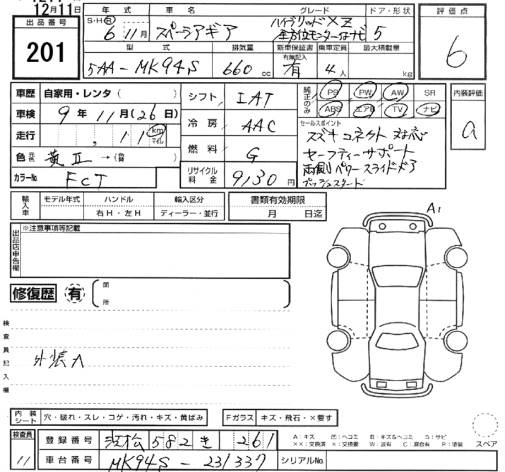 12月11日
出品番号 201
年式 車名 グレード ドア・形状 評価点
S・H・R 6年11月 スペーシアギア ハイブリッドXZ 全方位モニター付ナビ 5 6
型式 排気量 新車保証書 有無記入 乗車定員 最大積載量
5AA-MK94S 660cc 有 4人 kg
車歴 自家用・レンタ( )
車検 9年11月(26日)
走行 , 11 km マイル
色 黄II →( )
カラーNo FCT
シフト IAT
冷房 AAC
燃料 G
リサイクル料金 9130円
純正のみ PS PW AW SR
ABS エアB TV ナビ
内装評価 a
セールスポイント
スズキコネクト対応
セーフティーサポート
両側パワースライドドア
プッシュスタート
輸入車 モデル年式 ハンドル 輸入区分 書類有効期限
右H・左H ディーラー・並行 月 日迄
出品店申告欄 ※注意事項等記載
修復歴 有 箇所
A1
検査員記入欄
外装A
内装シート 穴・破れ・スレ・コゲ・汚れ・キズ・黄ばみ Fガラス キズ・飛石・×要す
検査員 11
登録番号 浜松 582 き 261
車台番号 MK94S-231337 シリアルNo.
A:キズ U:ヘコミ B:キズ&ヘコミ S:サビ
XX:交換済 X:交換要 W:波有 C:腐食有 P:塗装
スペア